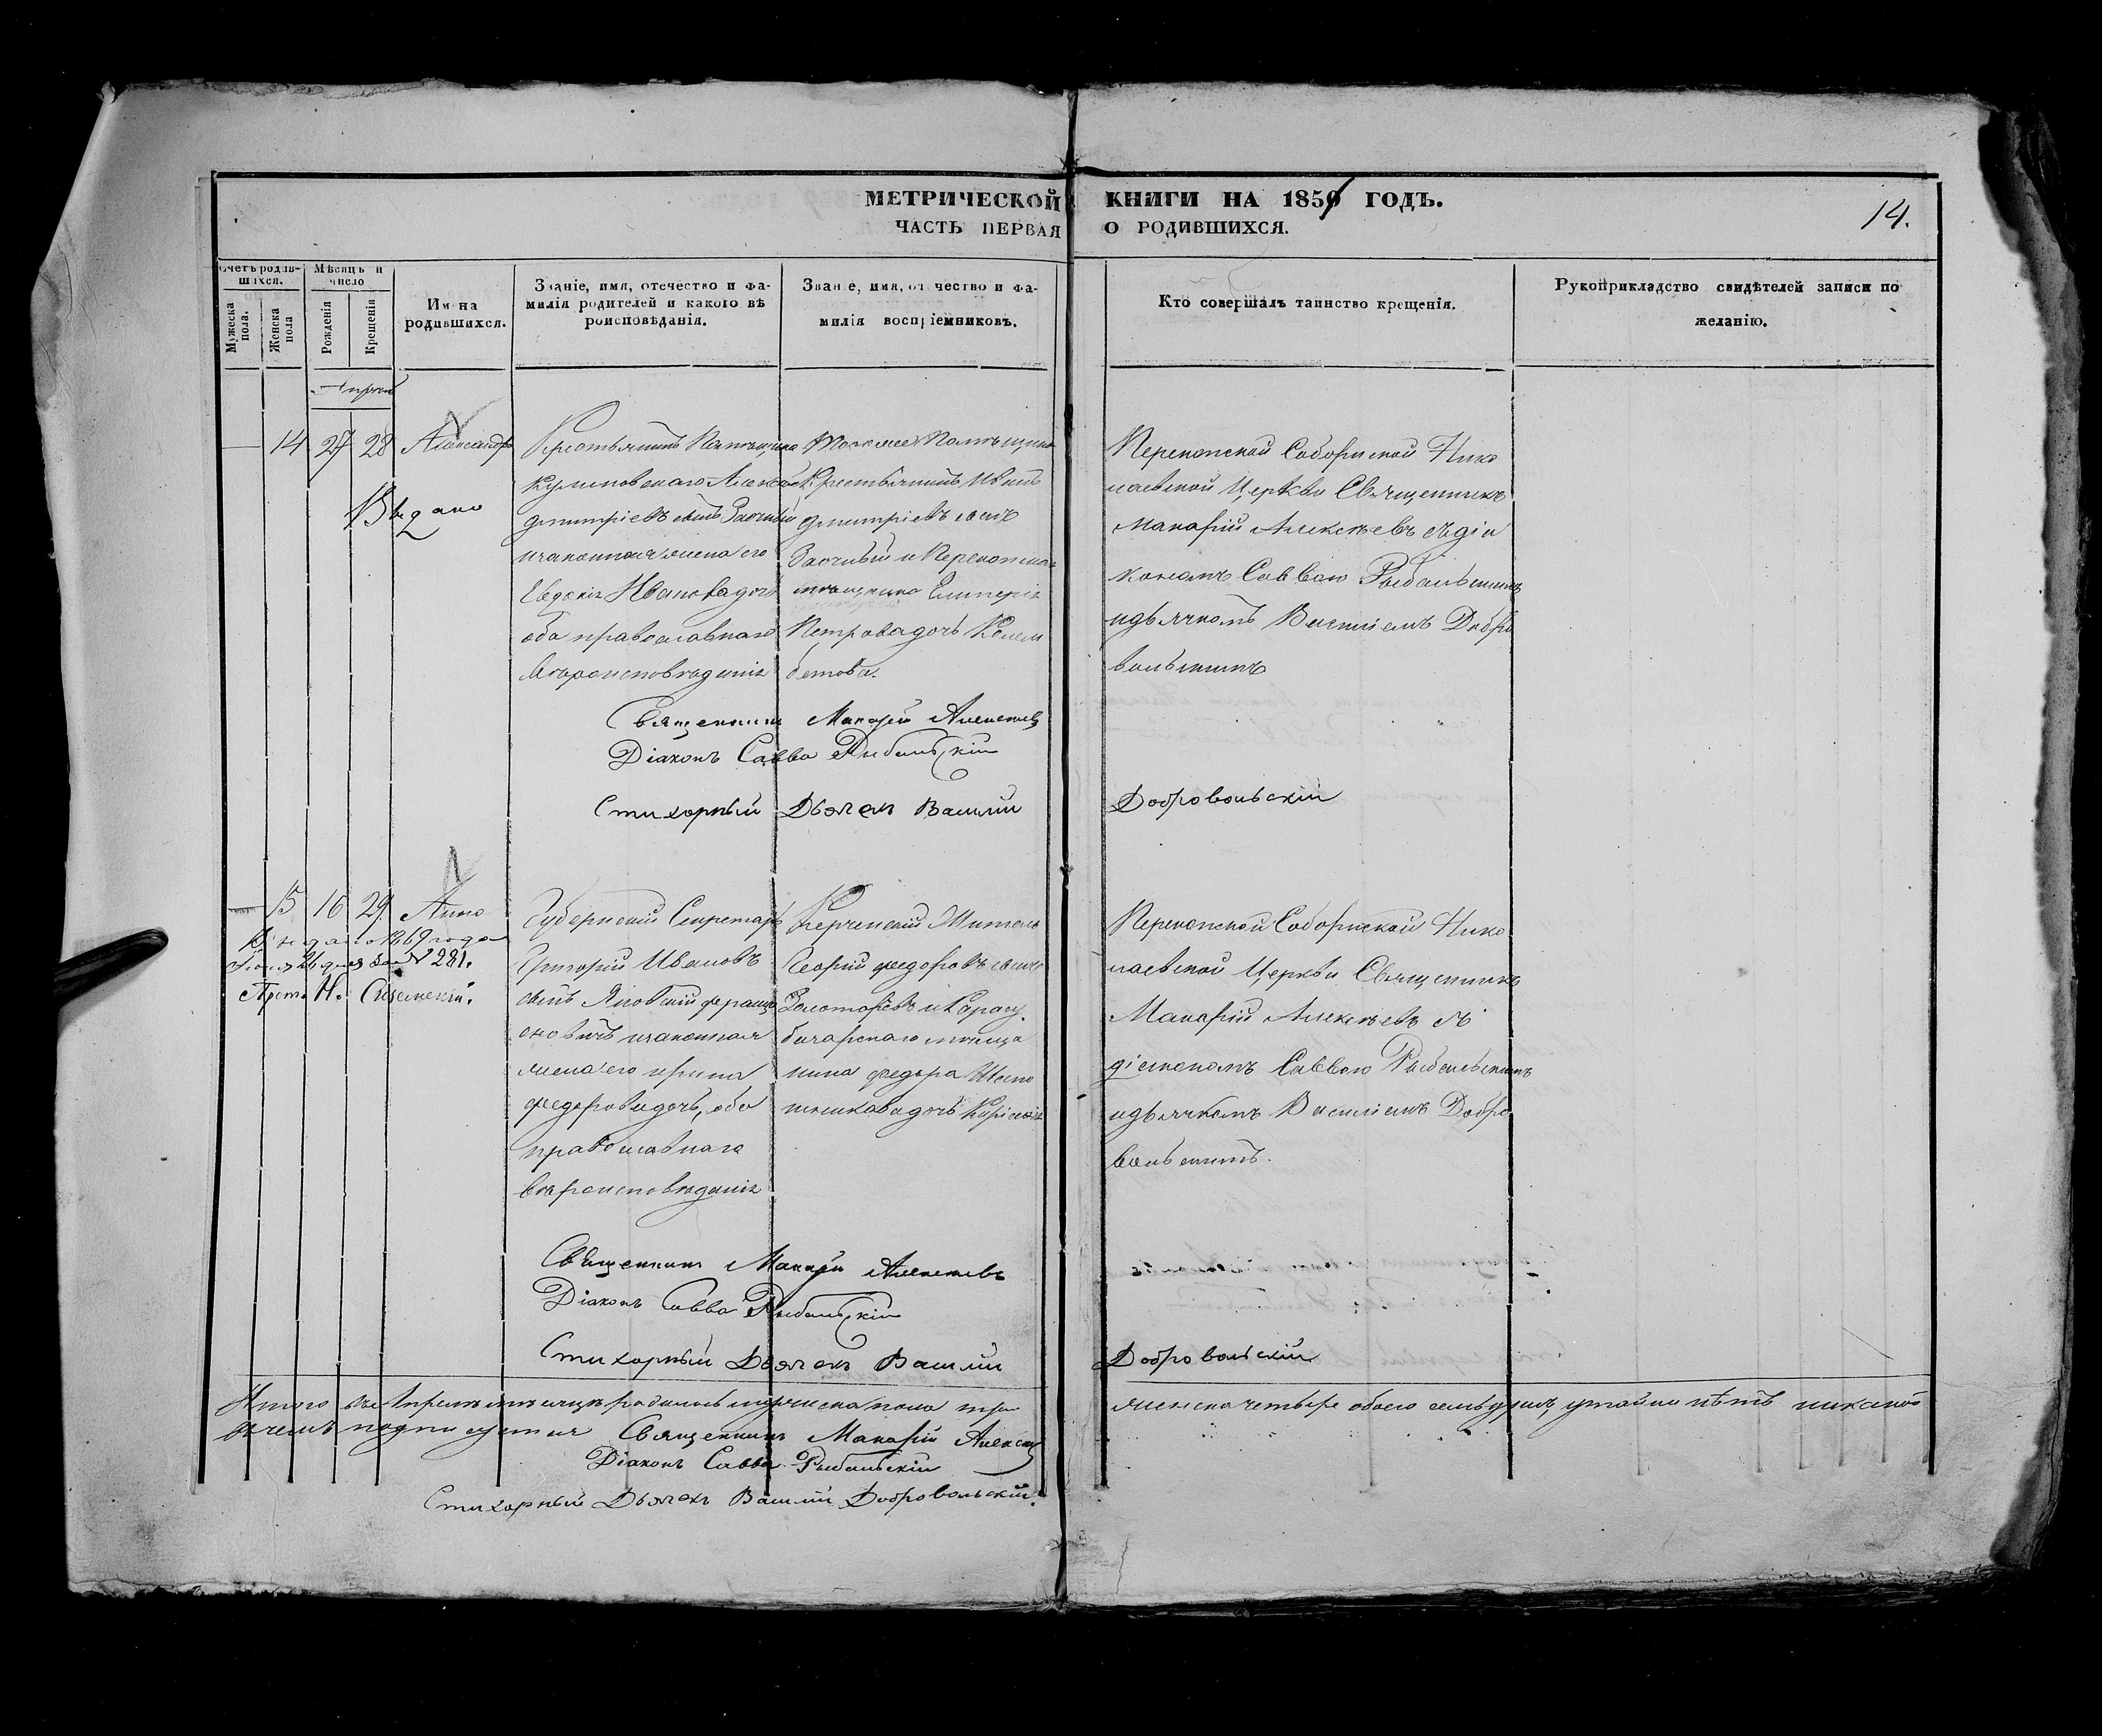 МЕТРИЧЕСКОЙ КНИГИ НА 1859 ГОДЪ.
14.
ЧАСТЬ ПЕРВАЯ О РОДИВШИХСЯ.
Счетъ родив-
шихся.
Мужеска
пола.
Женска
пола
Мѣсяцъ и
число
Рожденія
Крещенія
Имѣна
родившихся.
Званіе, имя, отечество и фа-
милія родителей и какого вѣ
роисповѣданія.
Званіе, имя, отечество и фа-
милія воспріемниковъ.
Кто совершалъ таинство крещенія.
Рукоприкладство свидѣтелей записи по
желанію.
Апрель
14 27 28 Александра
Выдано
Крестьянинъ Помѣщика
Куликовскаго
Дмитріевъ сынъ
изаконная жена его
Евдокія Иванова дочь
оба православнаго
вѣроисповѣданія
Тогоже Помѣщика
Крестьянинъ Иванъ
Дмитріевъ сынъ
и Перекопская
мѣщанка
Петрова дочь
бетова.
Перекопской Соборнской Нико
лаевской Церкви Священникъ
Макарій Алексѣевъ съ діа
кономъ Саввою Рыбальскимъ
идьячкомъ Василіемъ Добро
вольскимъ
Священникъ Макарій Алексѣевъ
Діаконъ Савва Рыбальскій
Стихорный Дьячекъ Василій Добровольскій
15 16 29 Анна
Выдано 1869 года
26 дня за № 281.
Прот. Н.
Губернскій Секретарь
Григорій Ивановъ
сынъ Яновскій
изаконная
жена его Ирина
Федорова дочь, оба
православнаго
вѣроисповѣданія
Керченскій Житель
Георгій Федоровъ сынъ
Золоторевъ и Карасу
базарскаго мѣща
нина Федора
дочь
Перекопской Соборнской Нико
лаевской Церкви Священникъ
Макарій Алексѣевъ съ
діакономъ Саввою Рыбальскимъ
идьячкомъ Василіемъ Добро
вольскимъ.
Священникъ Макарій Алексѣевъ
Діаконъ Савва Рыбальскій
Стихорный Дьячекъ Василій Добровольскій
Итого въ Апрелѣ мѣсяцѣ родилось мужеска пола три женска четыре обоего семь душъ, утайки нѣтъ никакой
вчемъ подписуемся Священникъ Макарій Алексѣевъ
Діаконъ Савва Рыбальскій
Стихорный Дьячекъ Василій Добровольскій.